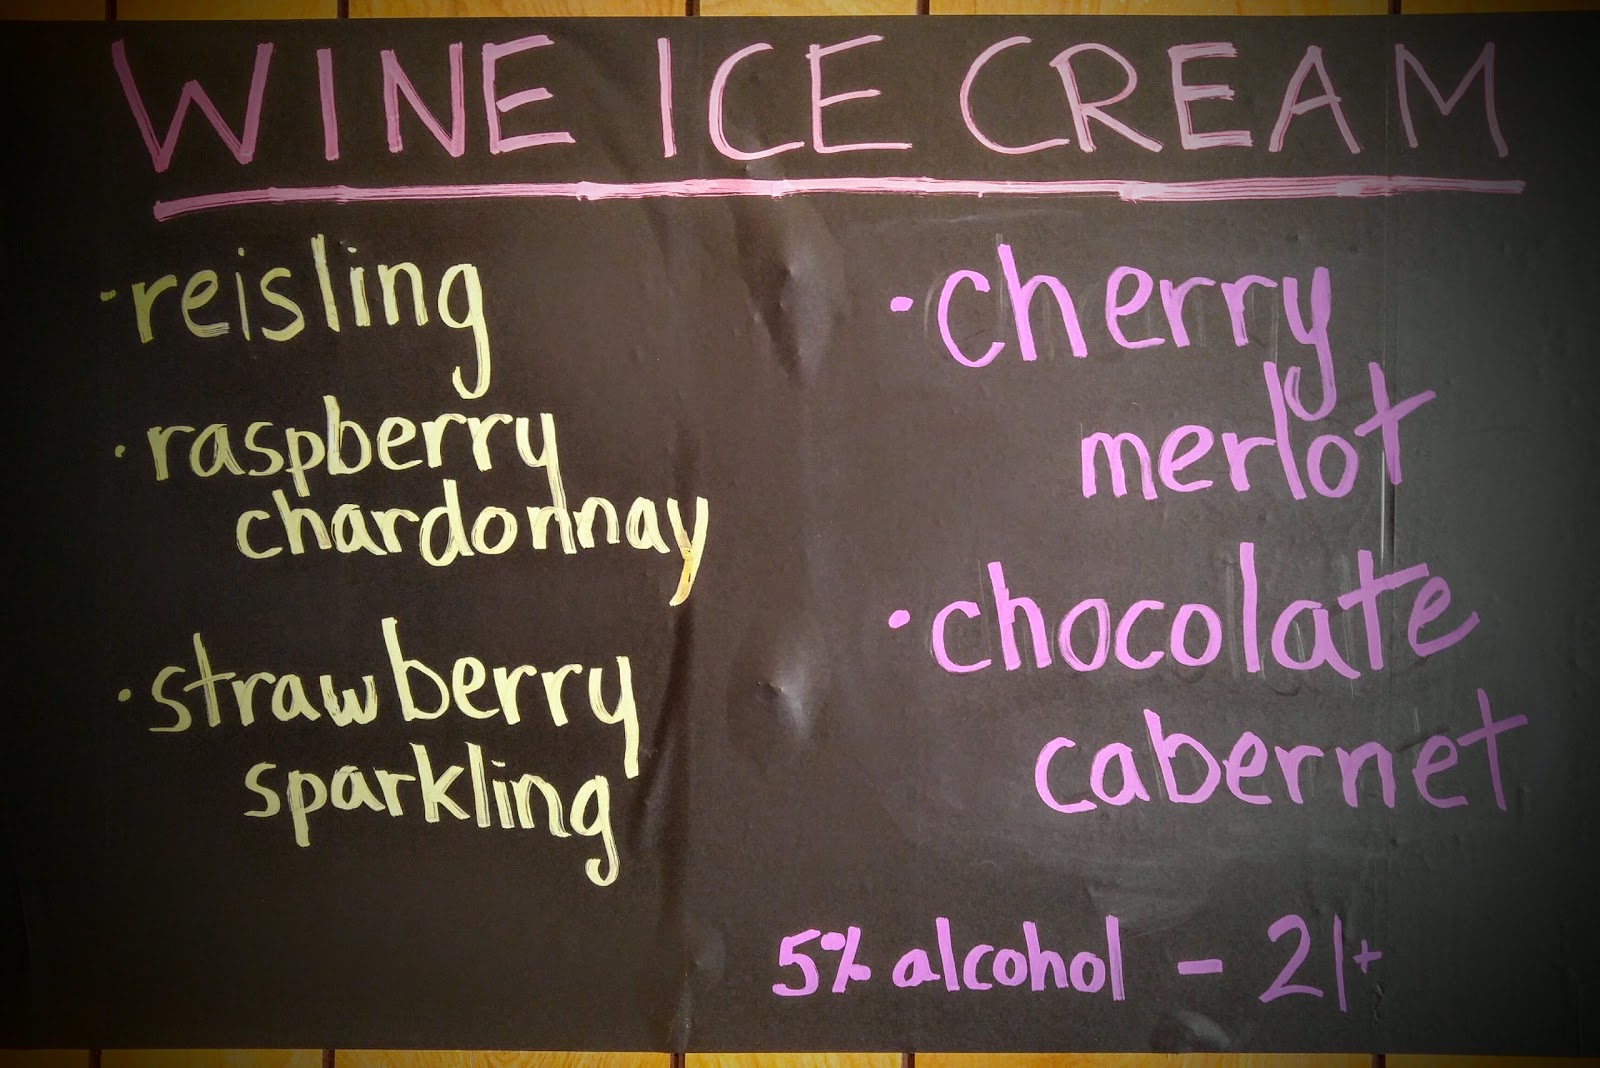 WINE ICE CREAM
·reisling
·raspberry
chardonnay
·strawberry
sparkling
·cherry
merlot
·chocolate
cabernet
5% alcohol - 21+